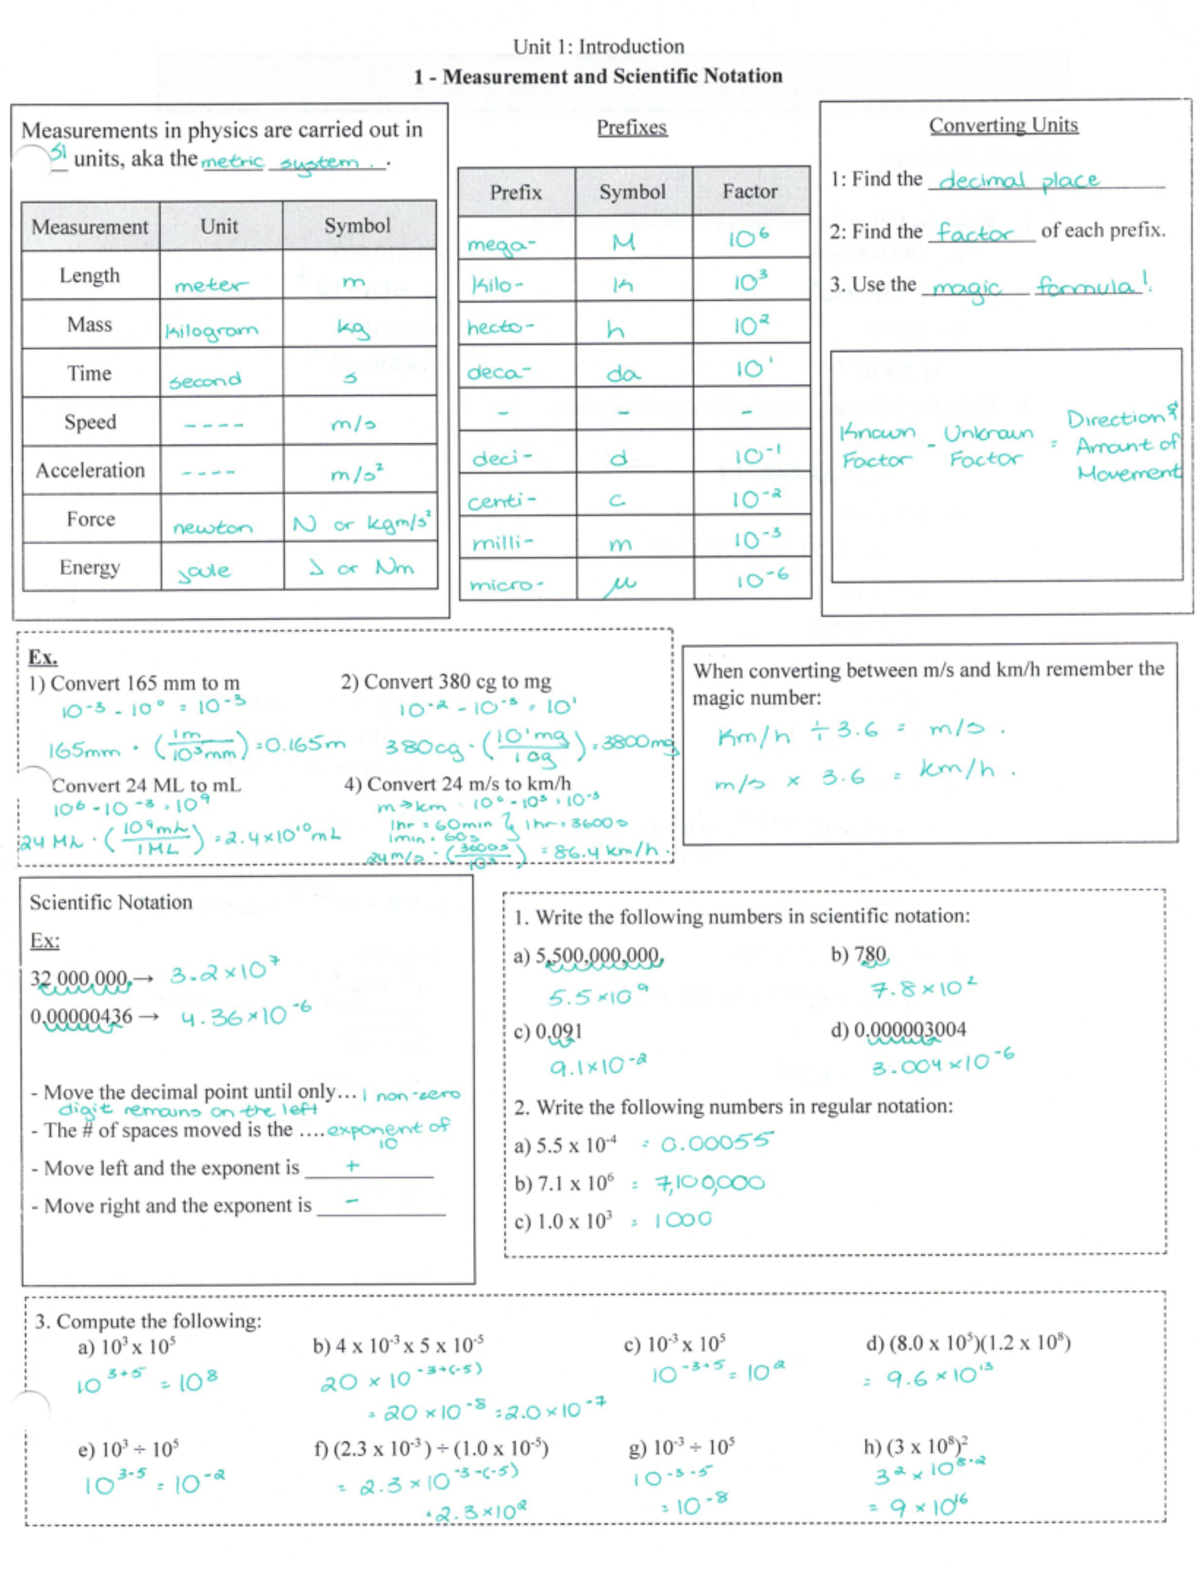 Unit 1: Introduction
1 - Measurement and Scientific Notation
Measurements in physics are carried out in
SI units, aka the metric system.
Measurement Unit Symbol
Length meter m
Mass kilogram kg
Time second s
Speed ---- m/s
Acceleration ---- m/s²
Force newton N or kgm/s²
Energy joule J or Nm
Prefixes
Prefix Symbol Factor
mega- M 10⁶
kilo- k 10³
hecto- h 10²
deca- da 10¹
- - -
deci- d 10⁻¹
centi- c 10⁻²
milli- m 10⁻³
micro- μ 10⁻⁶
Converting Units
1: Find the decimal place
2: Find the factor of each prefix.
3. Use the magic formula!
Known Factor - Unknown Factor = Direction & Amount of Movement
Ex.
1) Convert 165 mm to m
10⁻³ - 10⁰ = 10⁻³
165mm · (1m/10³mm) = 0.165m
2) Convert 380 cg to mg
10⁻² - 10⁻³ = 10¹
380cg · (10¹mg/1cg) = 3800mg
Convert 24 ML to mL
10⁶ - 10⁻³ = 10⁹
24 ML · (10⁹mL/1ML) = 2.4×10¹⁰mL
4) Convert 24 m/s to km/h
m→km = 10⁰ - 10³ = 10⁻³
1hr = 60min } 1hr = 3600s
1min = 60s
24m/s · (3600s/10³) = 86.4 km/h.
When converting between m/s and km/h remember the
magic number:
Km/h ÷ 3.6 = m/s.
m/s × 3.6 = km/h.
Scientific Notation
Ex:
32 000,000, → 3.2×10⁷
0.00000436 → 4.36×10⁻⁶
- Move the decimal point until only… 1 non-zero
digit remains on the left
- The # of spaces moved is the ….exponent of
10
- Move left and the exponent is +
- Move right and the exponent is -
1. Write the following numbers in scientific notation:
a) 5,500,000,000, b) 780
5.5×10⁹ 7.8×10²
c) 0.091 d) 0.000003004
9.1×10⁻² 3.004×10⁻⁶
2. Write the following numbers in regular notation:
a) 5.5 x 10⁻⁴ = 0.00055
b) 7.1 x 10⁶ = 7,100,000
c) 1.0 x 10³ = 1000
3. Compute the following:
a) 10³ x 10⁵ b) 4 x 10⁻³ x 5 x 10⁻⁵ c) 10⁻³ x 10⁵ d) (8.0 x 10⁵)(1.2 x 10⁸)
10³⁺⁵ = 10⁸ 20 × 10⁻³⁺⁽⁻⁵⁾ 10⁻³⁺⁵ = 10² = 9.6×10¹³
= 20×10⁻⁸ = 2.0×10⁻⁷
e) 10³ ÷ 10⁵ f) (2.3 x 10⁻³) ÷ (1.0 x 10⁻⁵) g) 10⁻³ ÷ 10⁵ h) (3 x 10⁸)²
10³⁻⁵ = 10⁻² = 2.3×10⁻³⁻⁽⁻⁵⁾ 10⁻³⁻⁵ 3² × 10⁸·²
= 2.3×10² = 10⁻⁸ = 9 × 10¹⁶